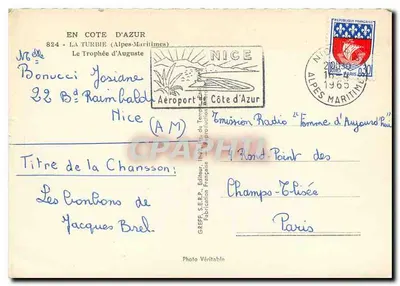 EN COTE D'AZUR
824 - LA TURBIE (Alpes-Maritimes)
Le Trophée d'Auguste
Melle
Bonucci Josiane
22 Bd Raimbaldi
Nice
(A M)
Titre de la Chanson:
Les bonbons de
Jacques Brel.
NICE
Aéroport Côte d'Azur
1965
ALPES MARITIMES
REPUBLIQUE FRANÇAISE
0,30
Emission Radio "Femme d'Aujourd'hui"
4 Rond-Point des
Champs-Elisée
Paris
Photo Véritable